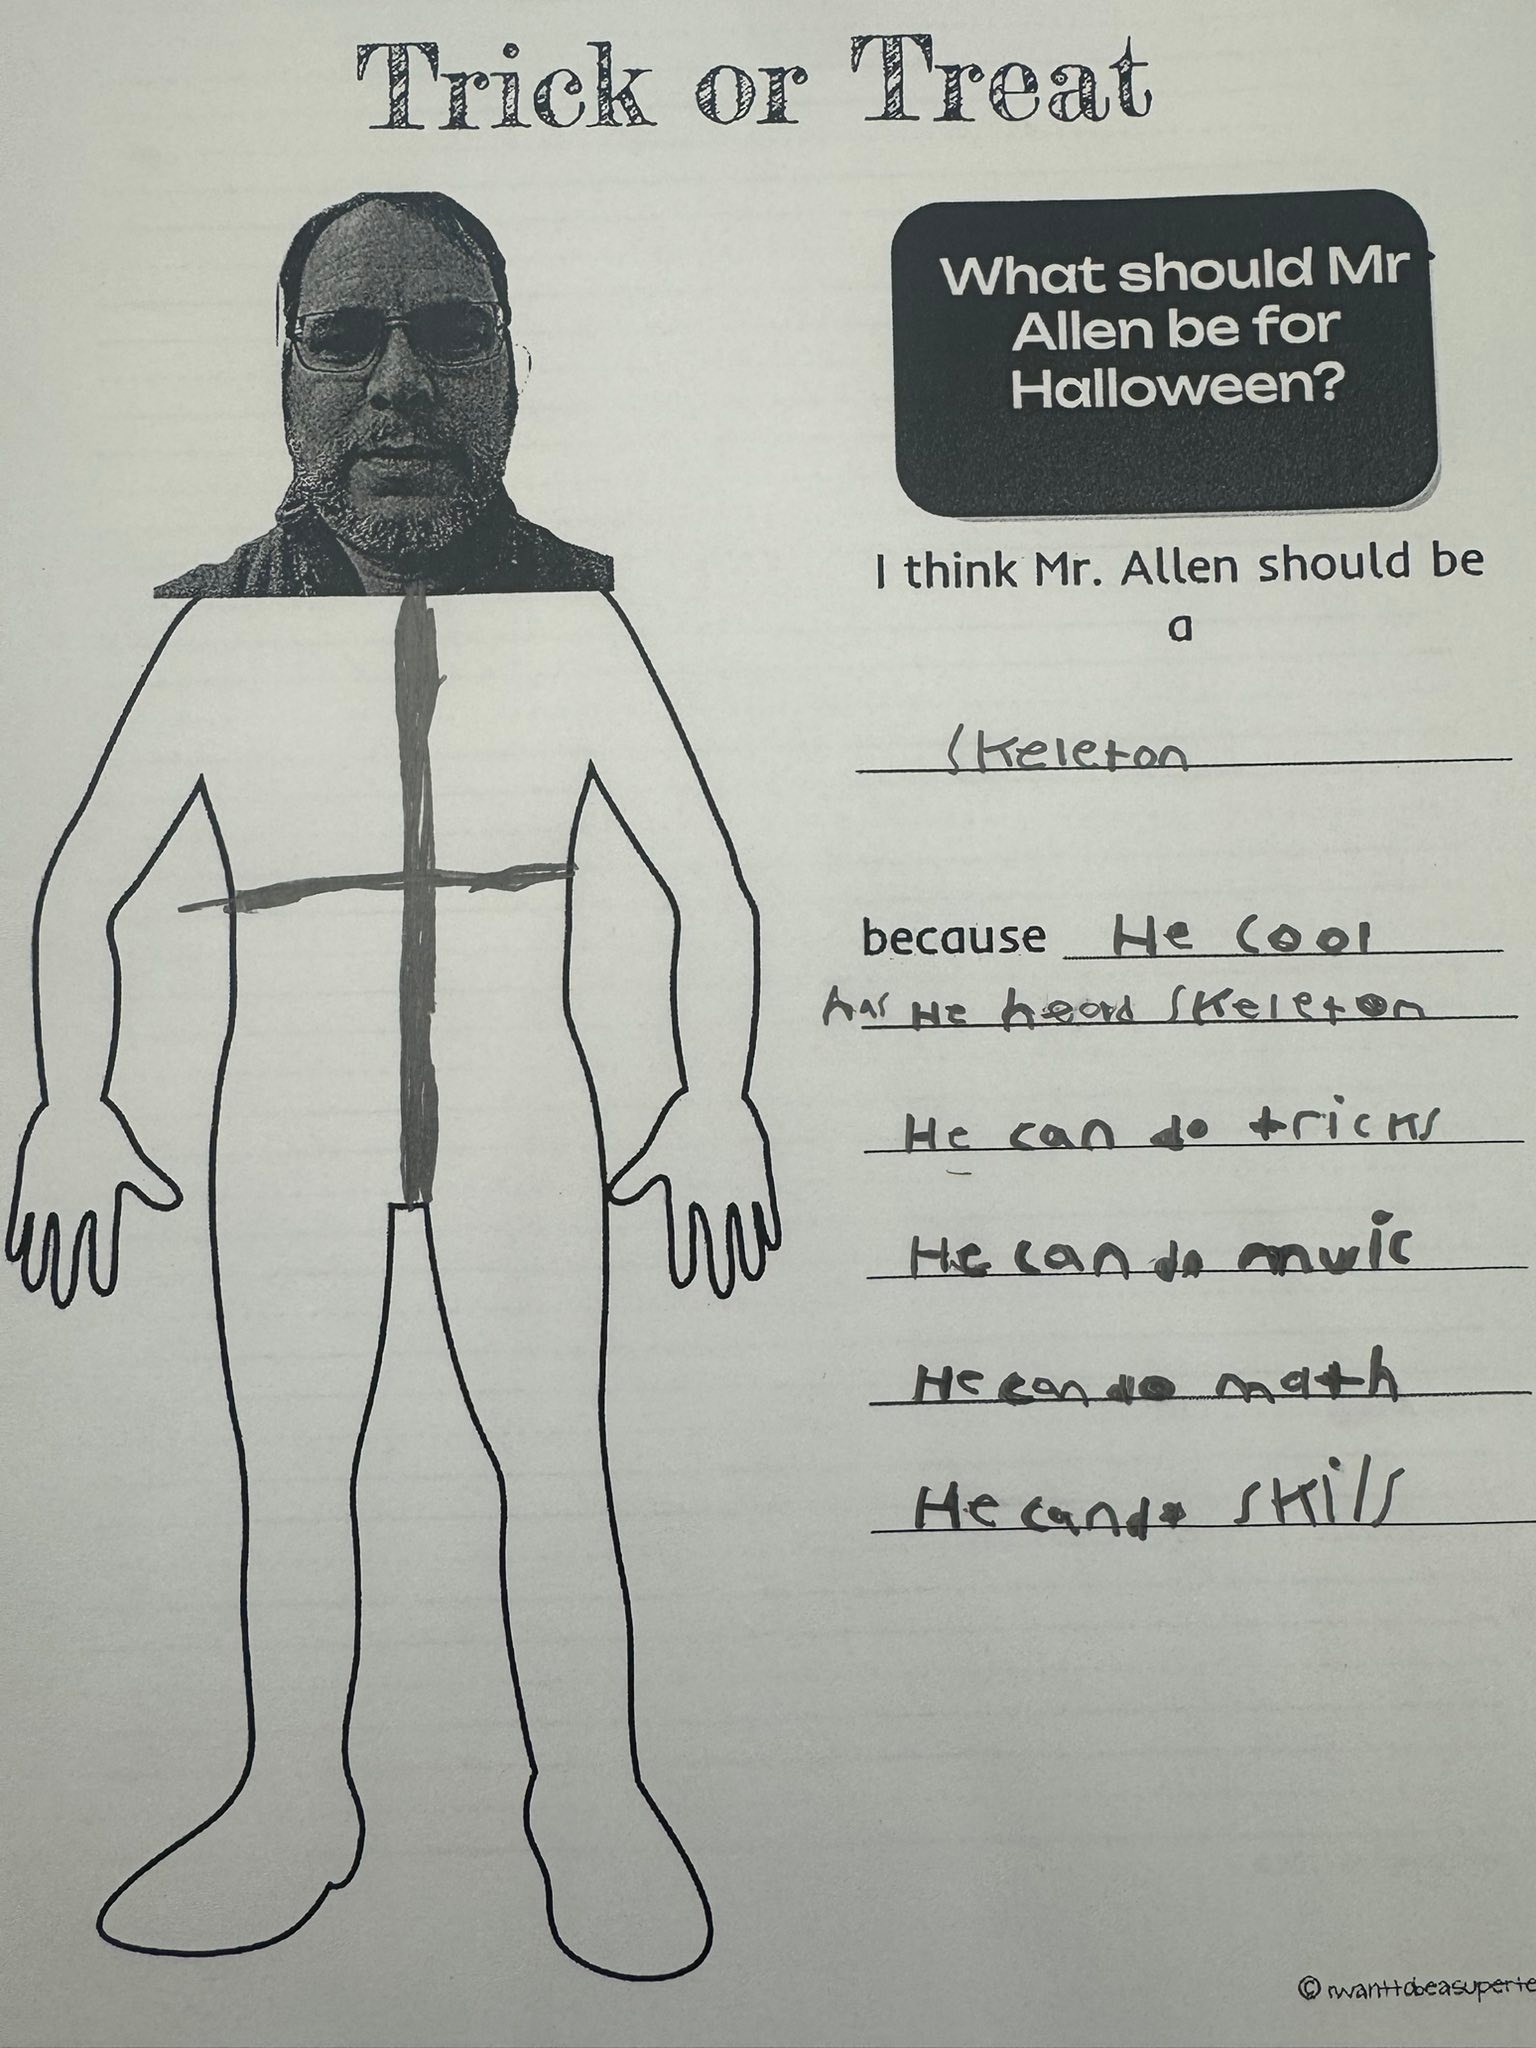 Trick or Treat
What should Mr
Allen be for
Halloween?
I think Mr. Allen should be
a
skeleton
because He cool
has He heard skeleton
He can do tricks
He can do muic
He can do math
He can do skills
©iwanttobeasuperte